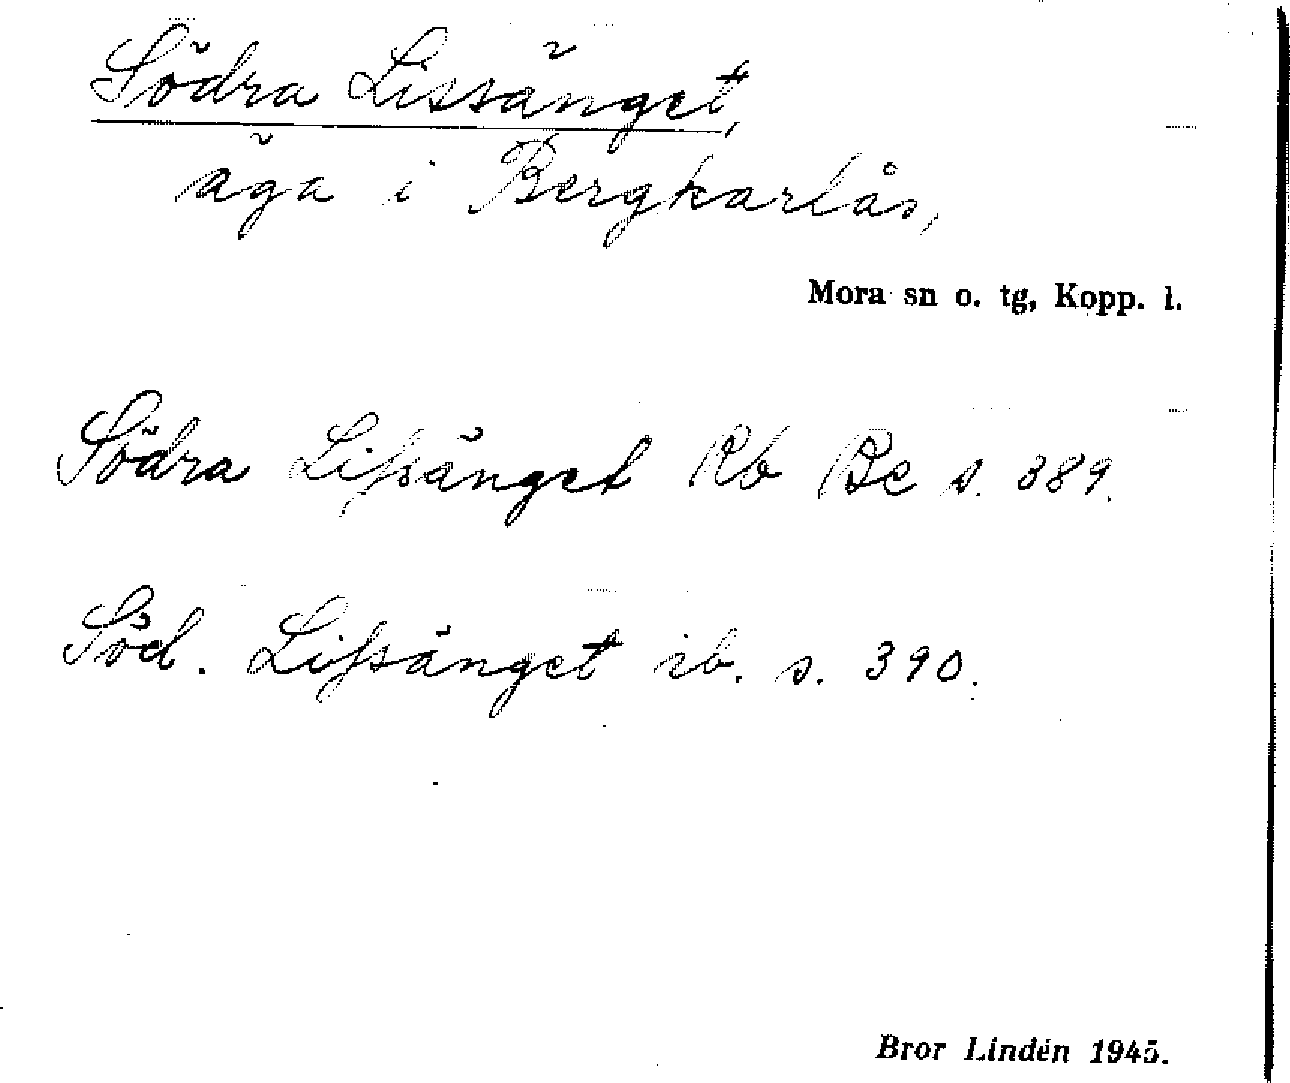 Södra Lissänget,
äga i Bergkarlås,
Mora sn o. tg, Kopp. l.
Södra Lifsänget Rb Be s. 389.
Söd. Lifsänget ib. s. 390.
Bror Lindén 1945.